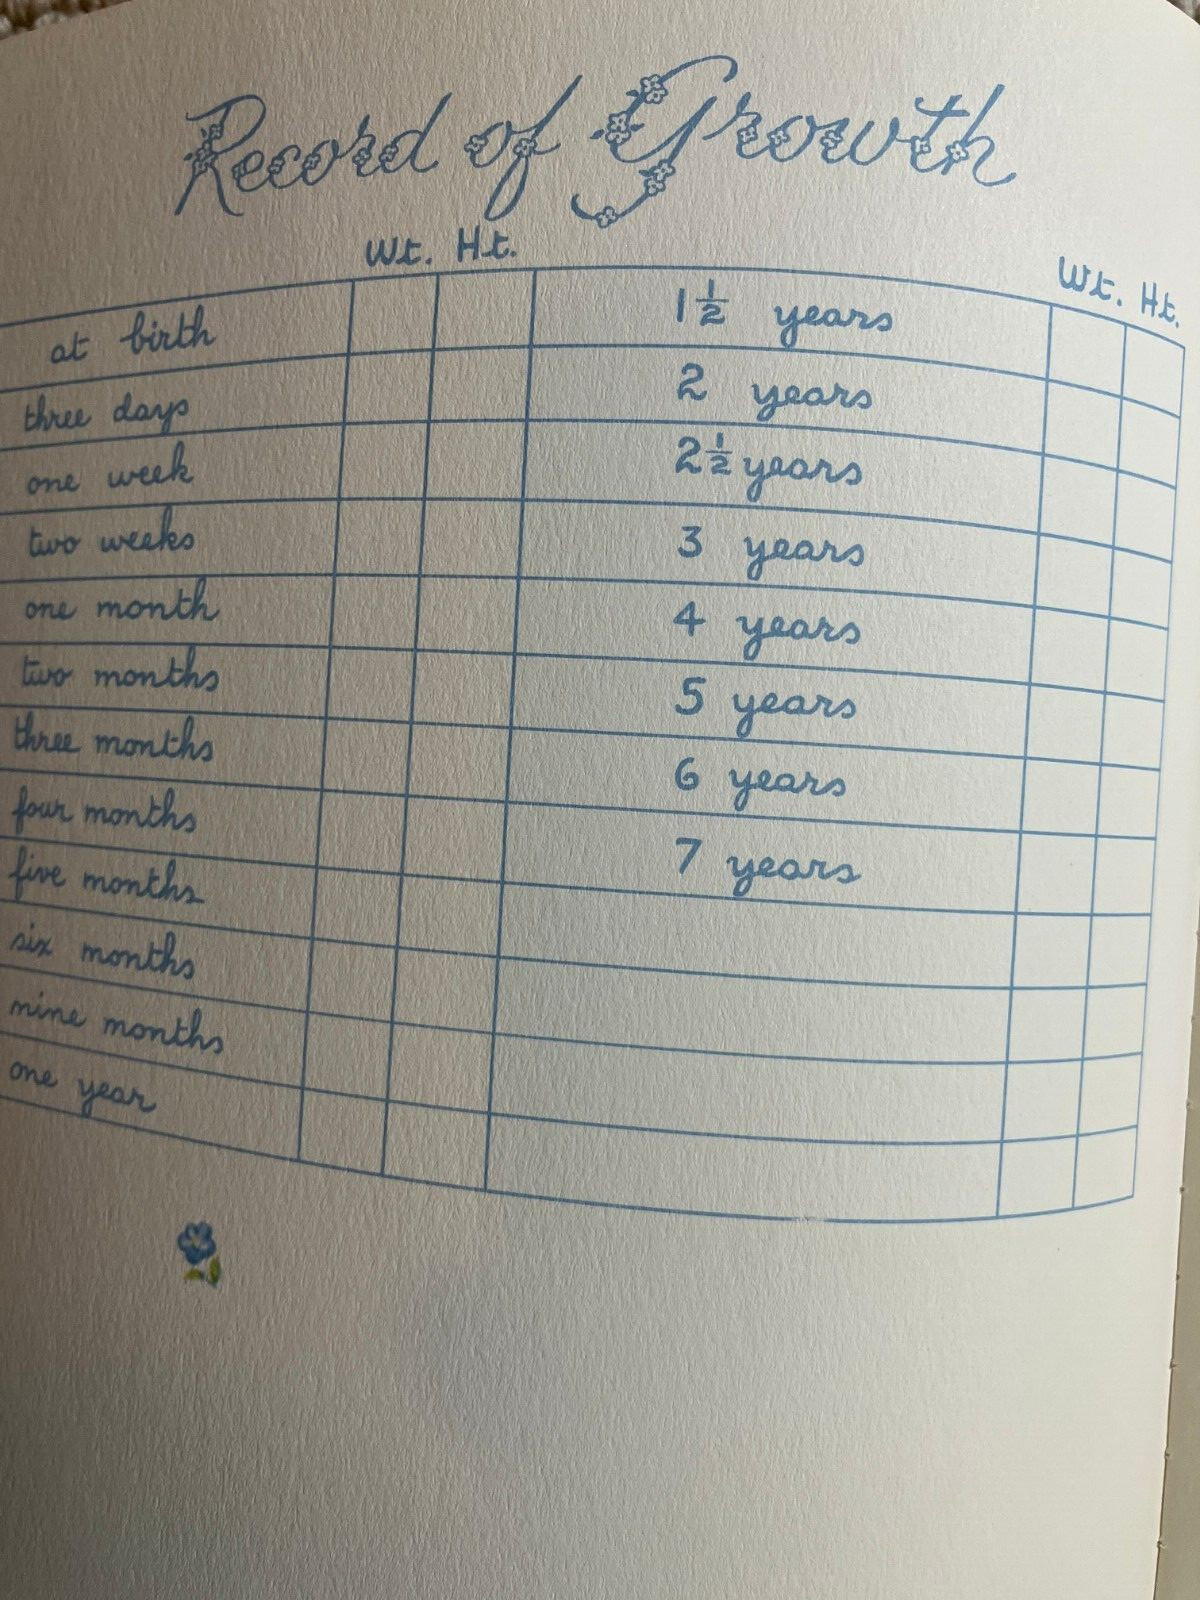 Record of Growth
Wt. Ht.
at birth
three days
one week
two weeks
one month
two months
three months
four months
five months
six months
nine months
one year
Wt. Ht.
1½ years
2 years
2½ years
3 years
4 years
5 years
6 years
7 years